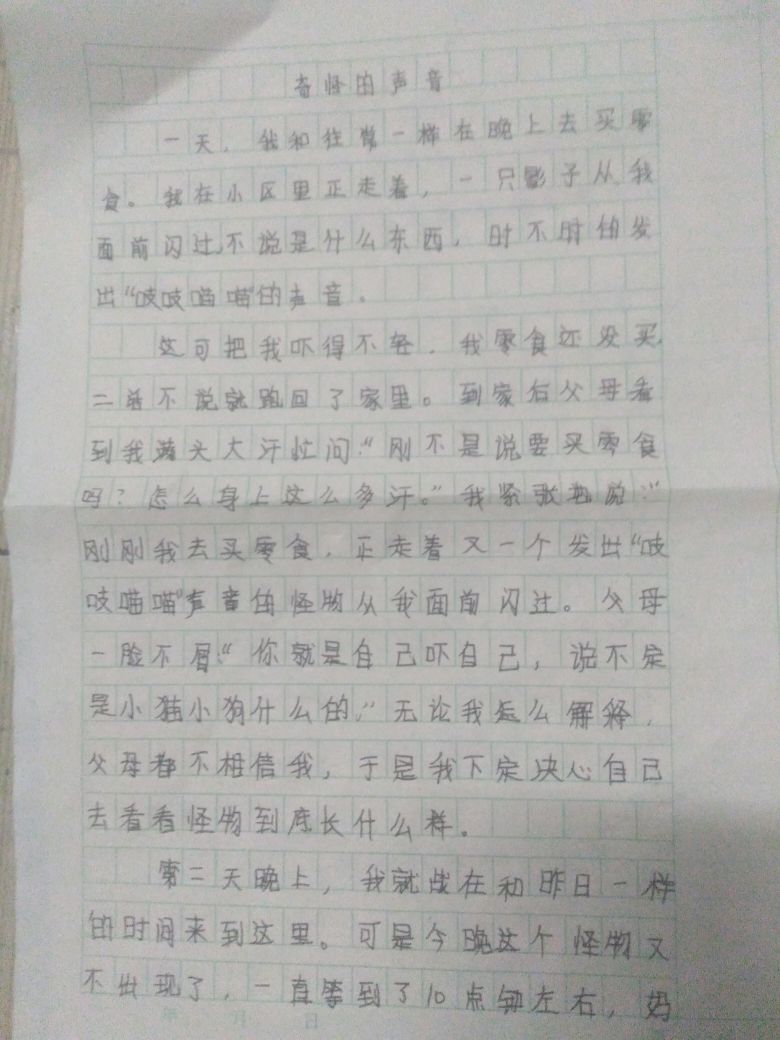 奇怪的声音
一天，我和往常一样在晚上去买零
食。我在小区里正走着，一只影子从我
面前闪过，不说是什么东西，时不时的发
出“吱吱喵喵”的声音。
这可把我吓得不轻，我零食还没买，
二话不说就跑回了家里。到家后父母看
到我满头大汗忙问：“刚不是说要买零食
吗？怎么身上这么多汗。”我紧张地说：“
刚刚我去买零食，正走着又一个发出“吱
吱喵喵”声音的怪物从我面前闪过。父母
一脸不屑：“你就是自己吓自己，说不定
是小猫小狗什么的，”无论我怎么解释，
父母都不相信我，于是我下定决心自己
去看看怪物到底长什么样。
第二天晚上，我就战在和昨日一样
的时间来到这里。可是今晚这个怪物又
不出现了，一直等到了10点钟左右，妈
年 月 日